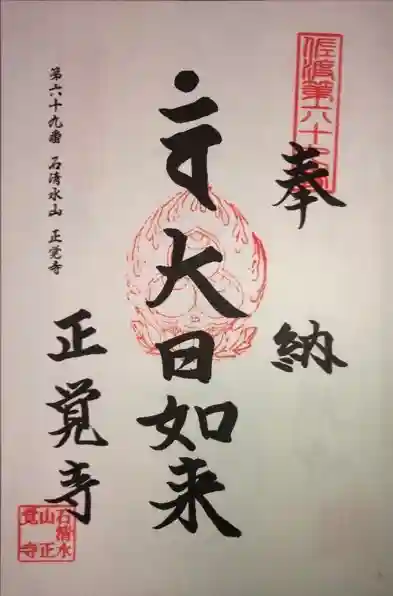 奉納
佐渡第六十九番
大日如来
正覚寺
第六十九番 石清水山 正覚寺
石清水
山正
覚寺